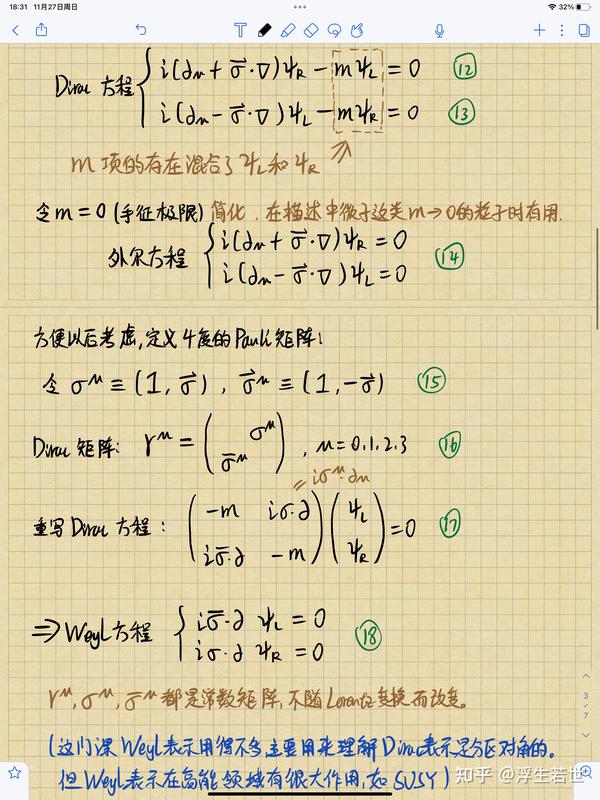 18:31 11月27日周日
32%
Dirac 方程 { i(∂μ + σ⃗·∇)ψ_R − mψ_L = 0 ⑫
i(∂μ − σ⃗·∇)ψ_L − mψ_R = 0 ⑬
m 项的存在混合了 ψ_L 和 ψ_R
令 m = 0 (手征极限) 简化,在描述中微子这类 m→0 的粒子时有用.
外尔方程 { i(∂μ + σ⃗·∇)ψ_R = 0
i(∂μ − σ⃗·∇)ψ_L = 0 ⑭
方便以后考虑,定义4度的Pauli矩阵:
令 σ^μ ≡ (1, σ⃗) , σ̄^μ ≡ (1, −σ⃗) ⑮
Dirac 矩阵: γ^μ = ( σ^μ
σ̄^μ ) , μ = 0.1.2.3 ⑯
= iσ^μ·∂μ
重写 Dirac 方程: ( −m iσ·∂
iσ̄·∂ −m ) ( ψ_L
ψ_R ) = 0 ⑰
⇒ Weyl 方程 { iσ̄·∂ ψ_L = 0
iσ·∂ ψ_R = 0 ⑱
γ^μ, σ^μ, σ̄^μ 都是常数矩阵,不随Lorentz变换而改变。
(这门课 Weyl表示用得不多 主要用来理解Dirac表示是分区对角的。
但Weyl表示在高能领域有很大作用,如 SUSY)
3
/
7
知乎 @浮生若世